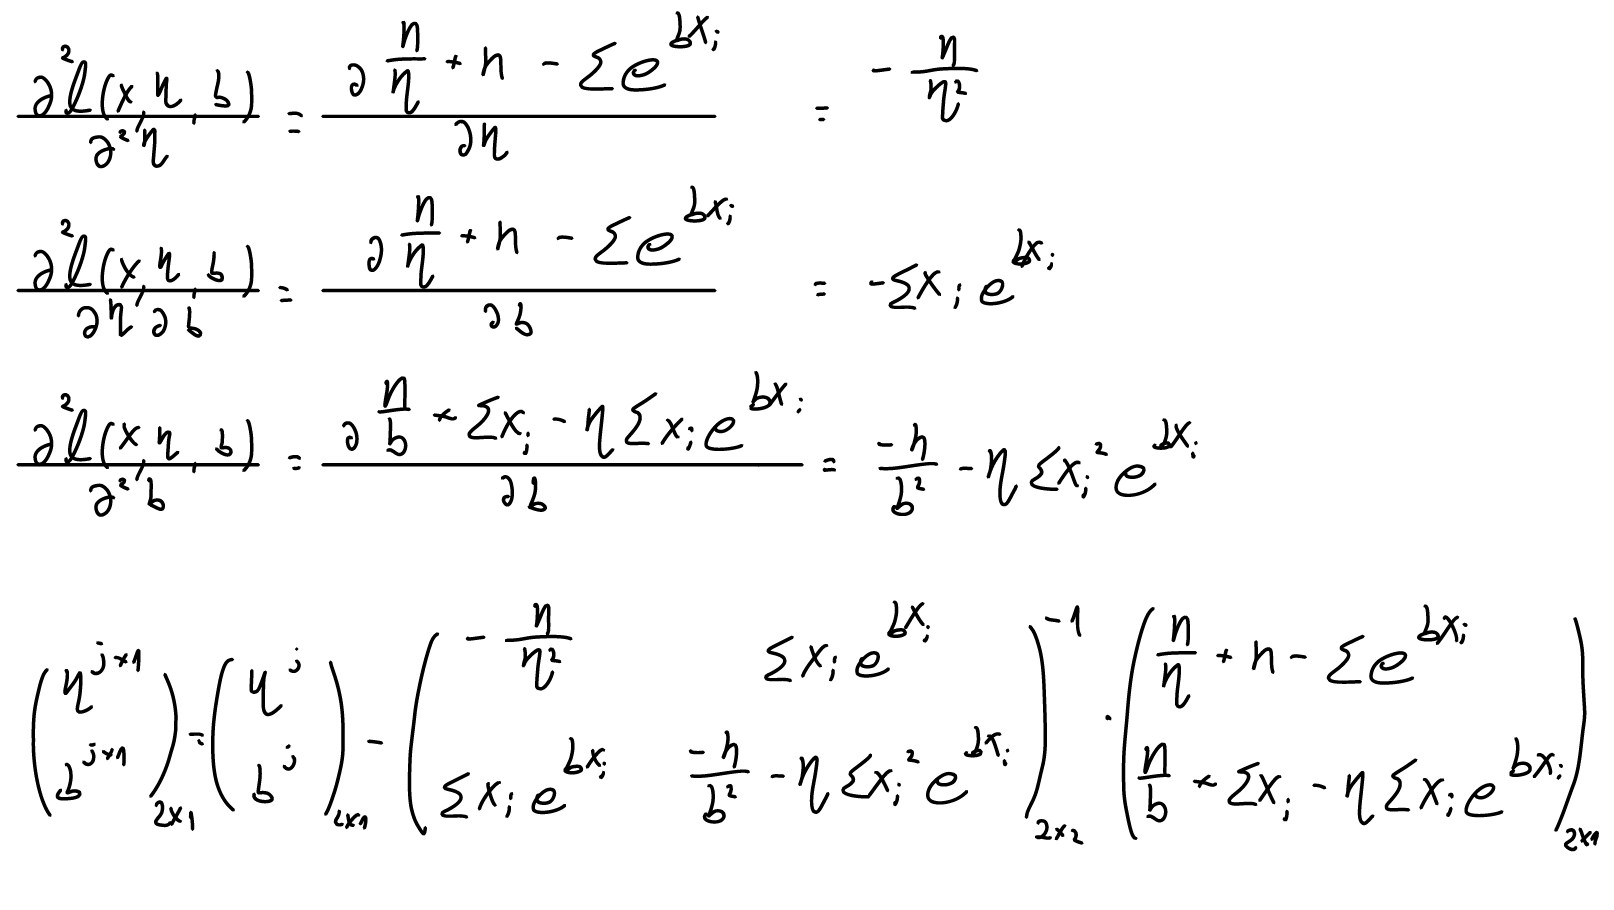 ∂²l(x,η,b)/∂²η = ∂ n/η + n - Σe^{bx_i} / ∂η = - n/η²
∂²l(x,η,b)/∂η∂b = ∂ n/η + n - Σe^{bx_i} / ∂b = -Σx_i e^{bx_i}
∂²l(x,η,b)/∂²b = ∂ n/b + Σx_i - ηΣx_i e^{bx_i} / ∂b = -n/b² - ηΣx_i² e^{bx_i}
(η^{j+1} b^{j+1})_{2x1} = (η^j b^j)_{2x1} - (- n/η² Σx_i e^{bx_i} Σx_i e^{bx_i} -n/b² - ηΣx_i² e^{bx_i})^{-1}_{2x2} · (n/η + n - Σe^{bx_i} n/b + Σx_i - ηΣx_i e^{bx_i})_{2x1}